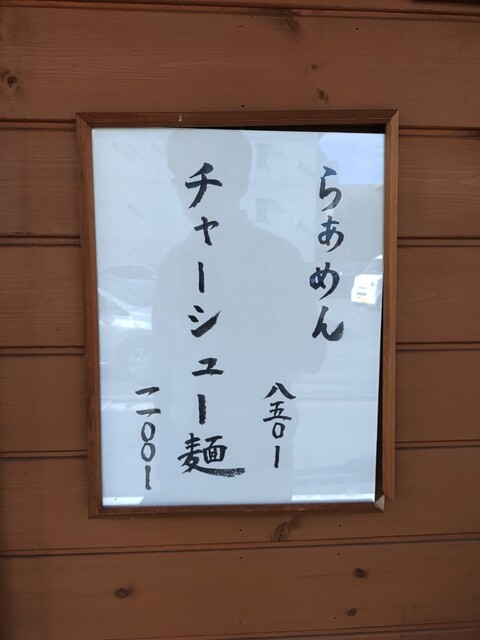 らぁめん
八五〇ー
チャーシュー麺
一一〇〇ー